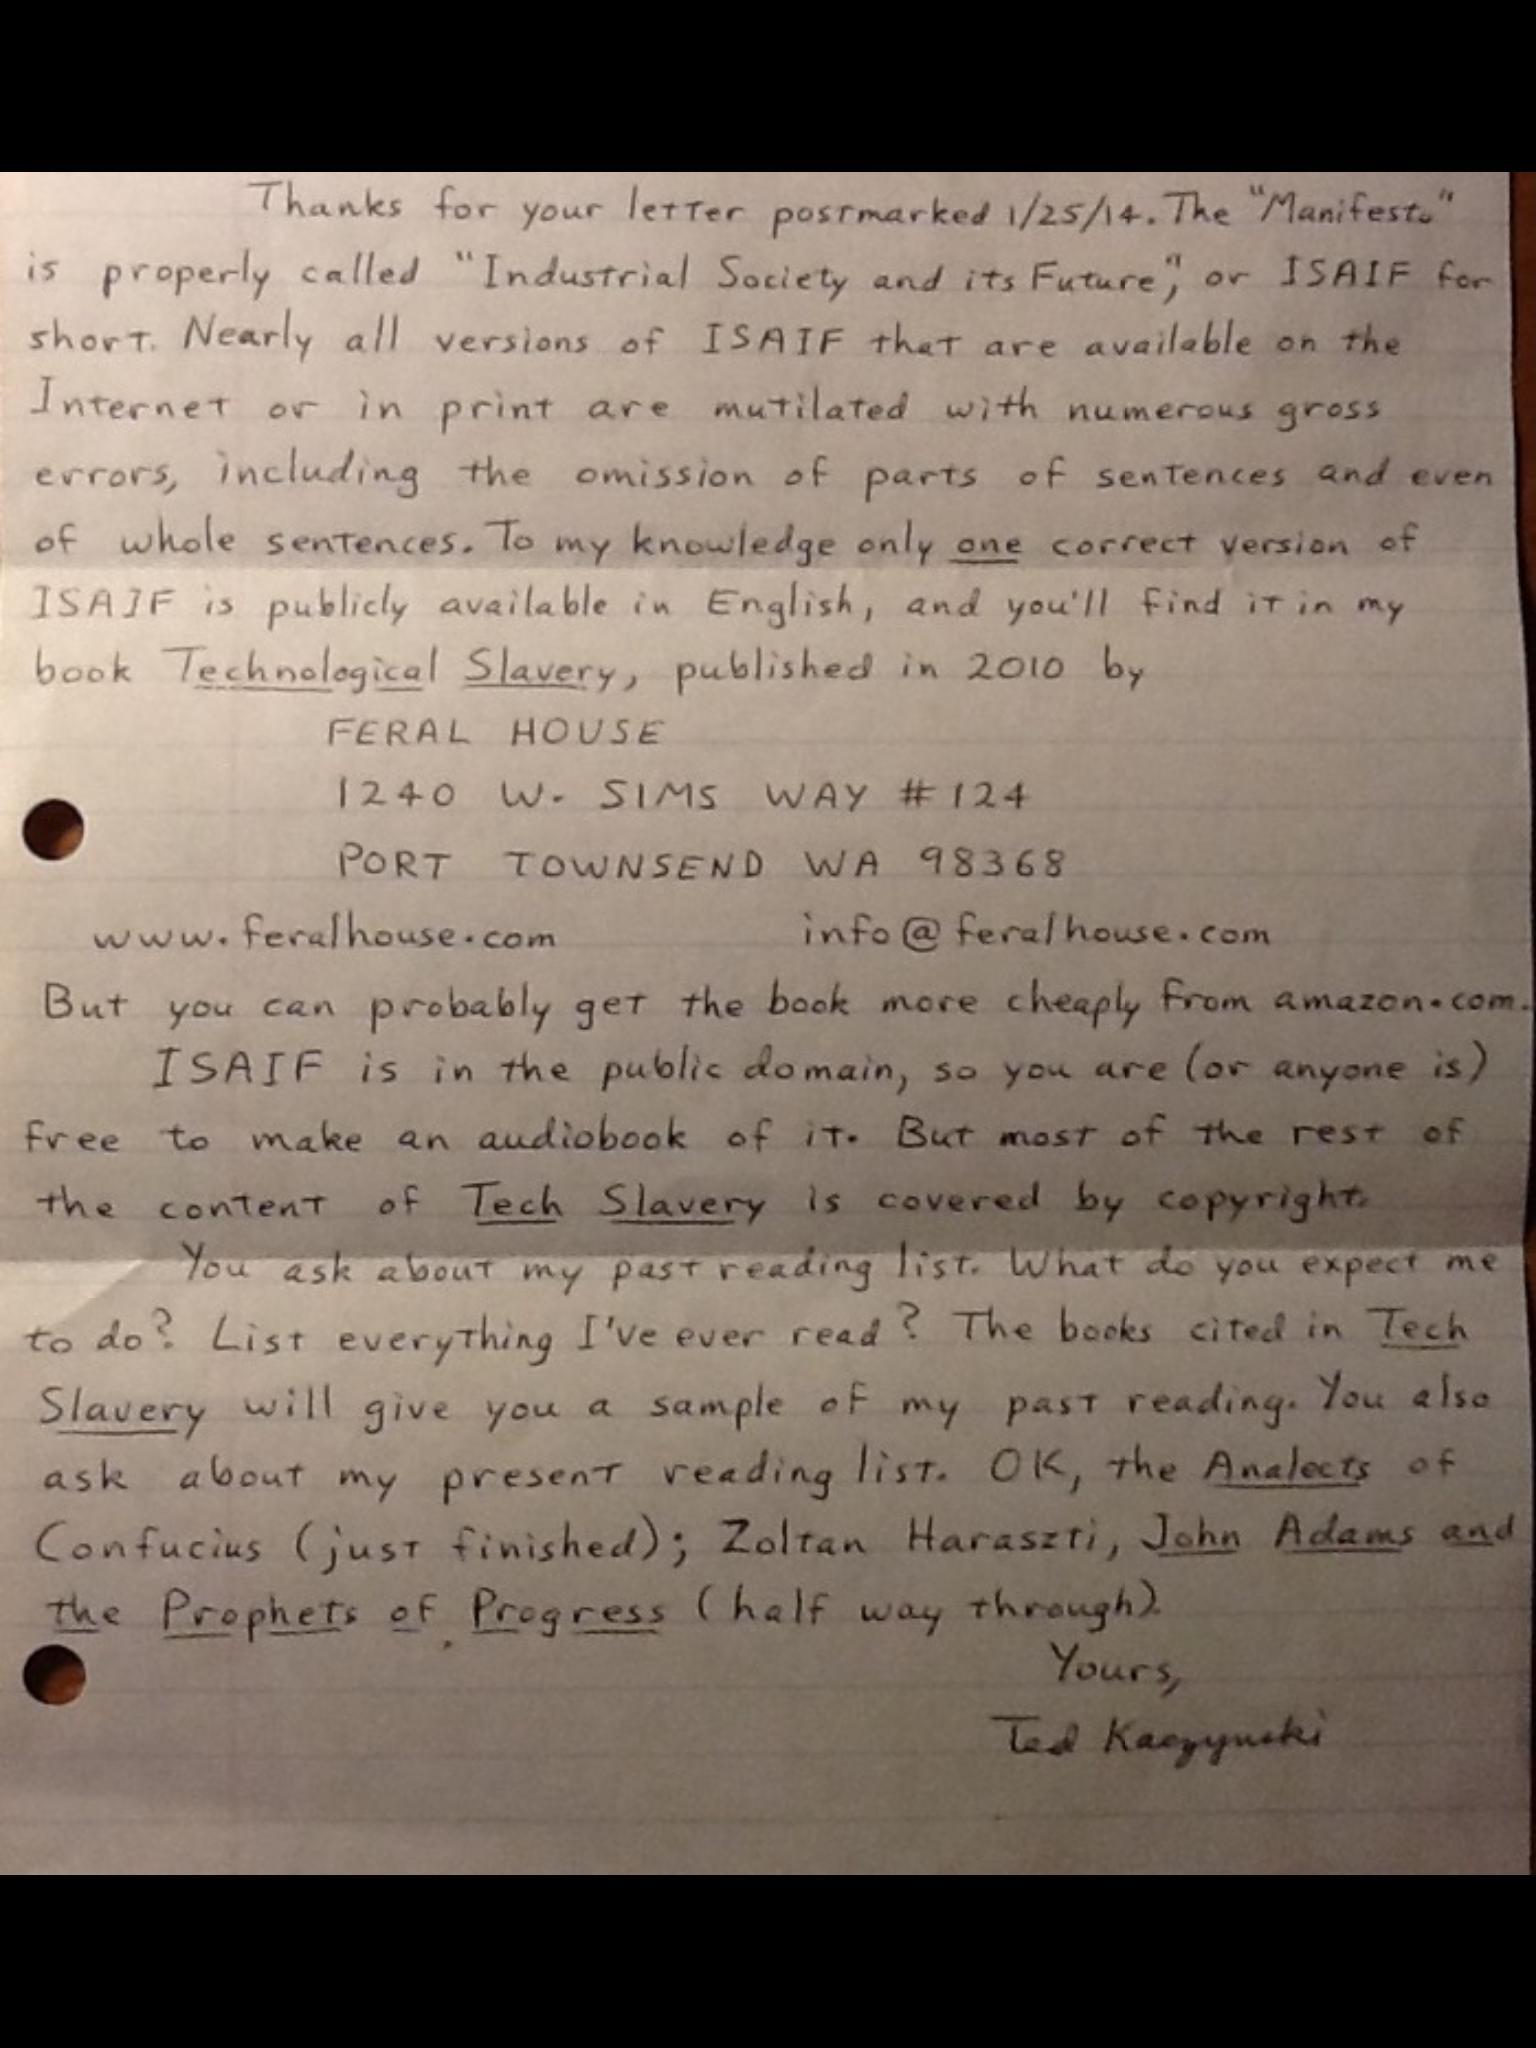 Thanks for your letter postmarked 1/25/14. The "Manifesto"
is properly called "Industrial Society and its Future," or ISAIF for
short. Nearly all versions of ISAIF that are available on the
Internet or in print are mutilated with numerous gross
errors, including the omission of parts of sentences and even
of whole sentences. To my knowledge only one correct version of
ISAIF is publicly available in English, and you'll find it in my
book Technological Slavery, published in 2010 by
FERAL HOUSE
1240 W. SIMS WAY #124
PORT TOWNSEND WA 98368
www.feralhouse.com info@feralhouse.com
But you can probably get the book more cheaply from amazon.com.
ISAIF is in the public domain, so you are (or anyone is)
free to make an audiobook of it. But most of the rest of
the content of Tech Slavery is covered by copyright.
You ask about my past reading list. What do you expect me
to do? List everything I've ever read? The books cited in Tech
Slavery will give you a sample of my past reading. You also
ask about my present reading list. OK, the Analects of
Confucius (just finished); Zoltan Haraszti, John Adams and
the Prophets of Progress (half way through).
Yours,
Ted Kaczynski